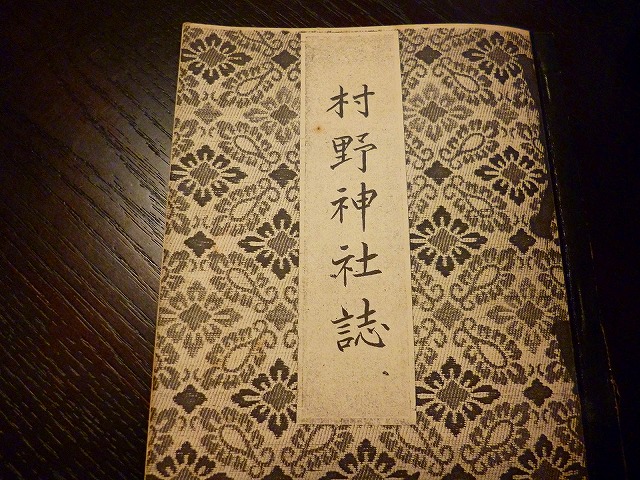 村野神社誌